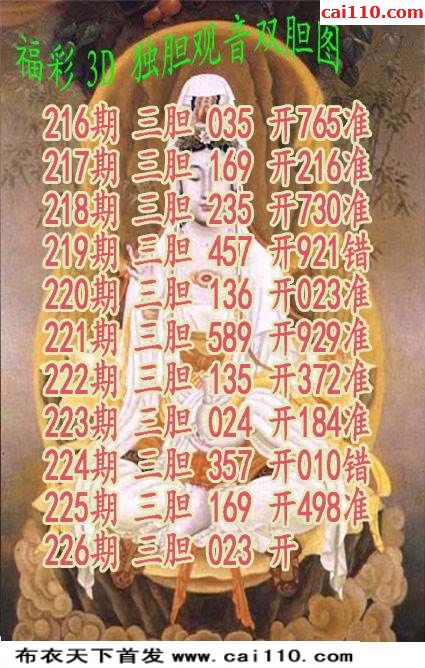 cai110.com
福彩3D 独胆观音双胆图
216期 三胆 035 开765准
217期 三胆 169 开216准
218期 三胆 235 开730准
219期 三胆 457 开921错
220期 三胆 136 开023准
221期 三胆 589 开929准
222期 三胆 135 开372准
223期 三胆 024 开184准
224期 三胆 357 开010错
225期 三胆 169 开498准
226期 三胆 023 开
布衣天下首发 www.cai110.com